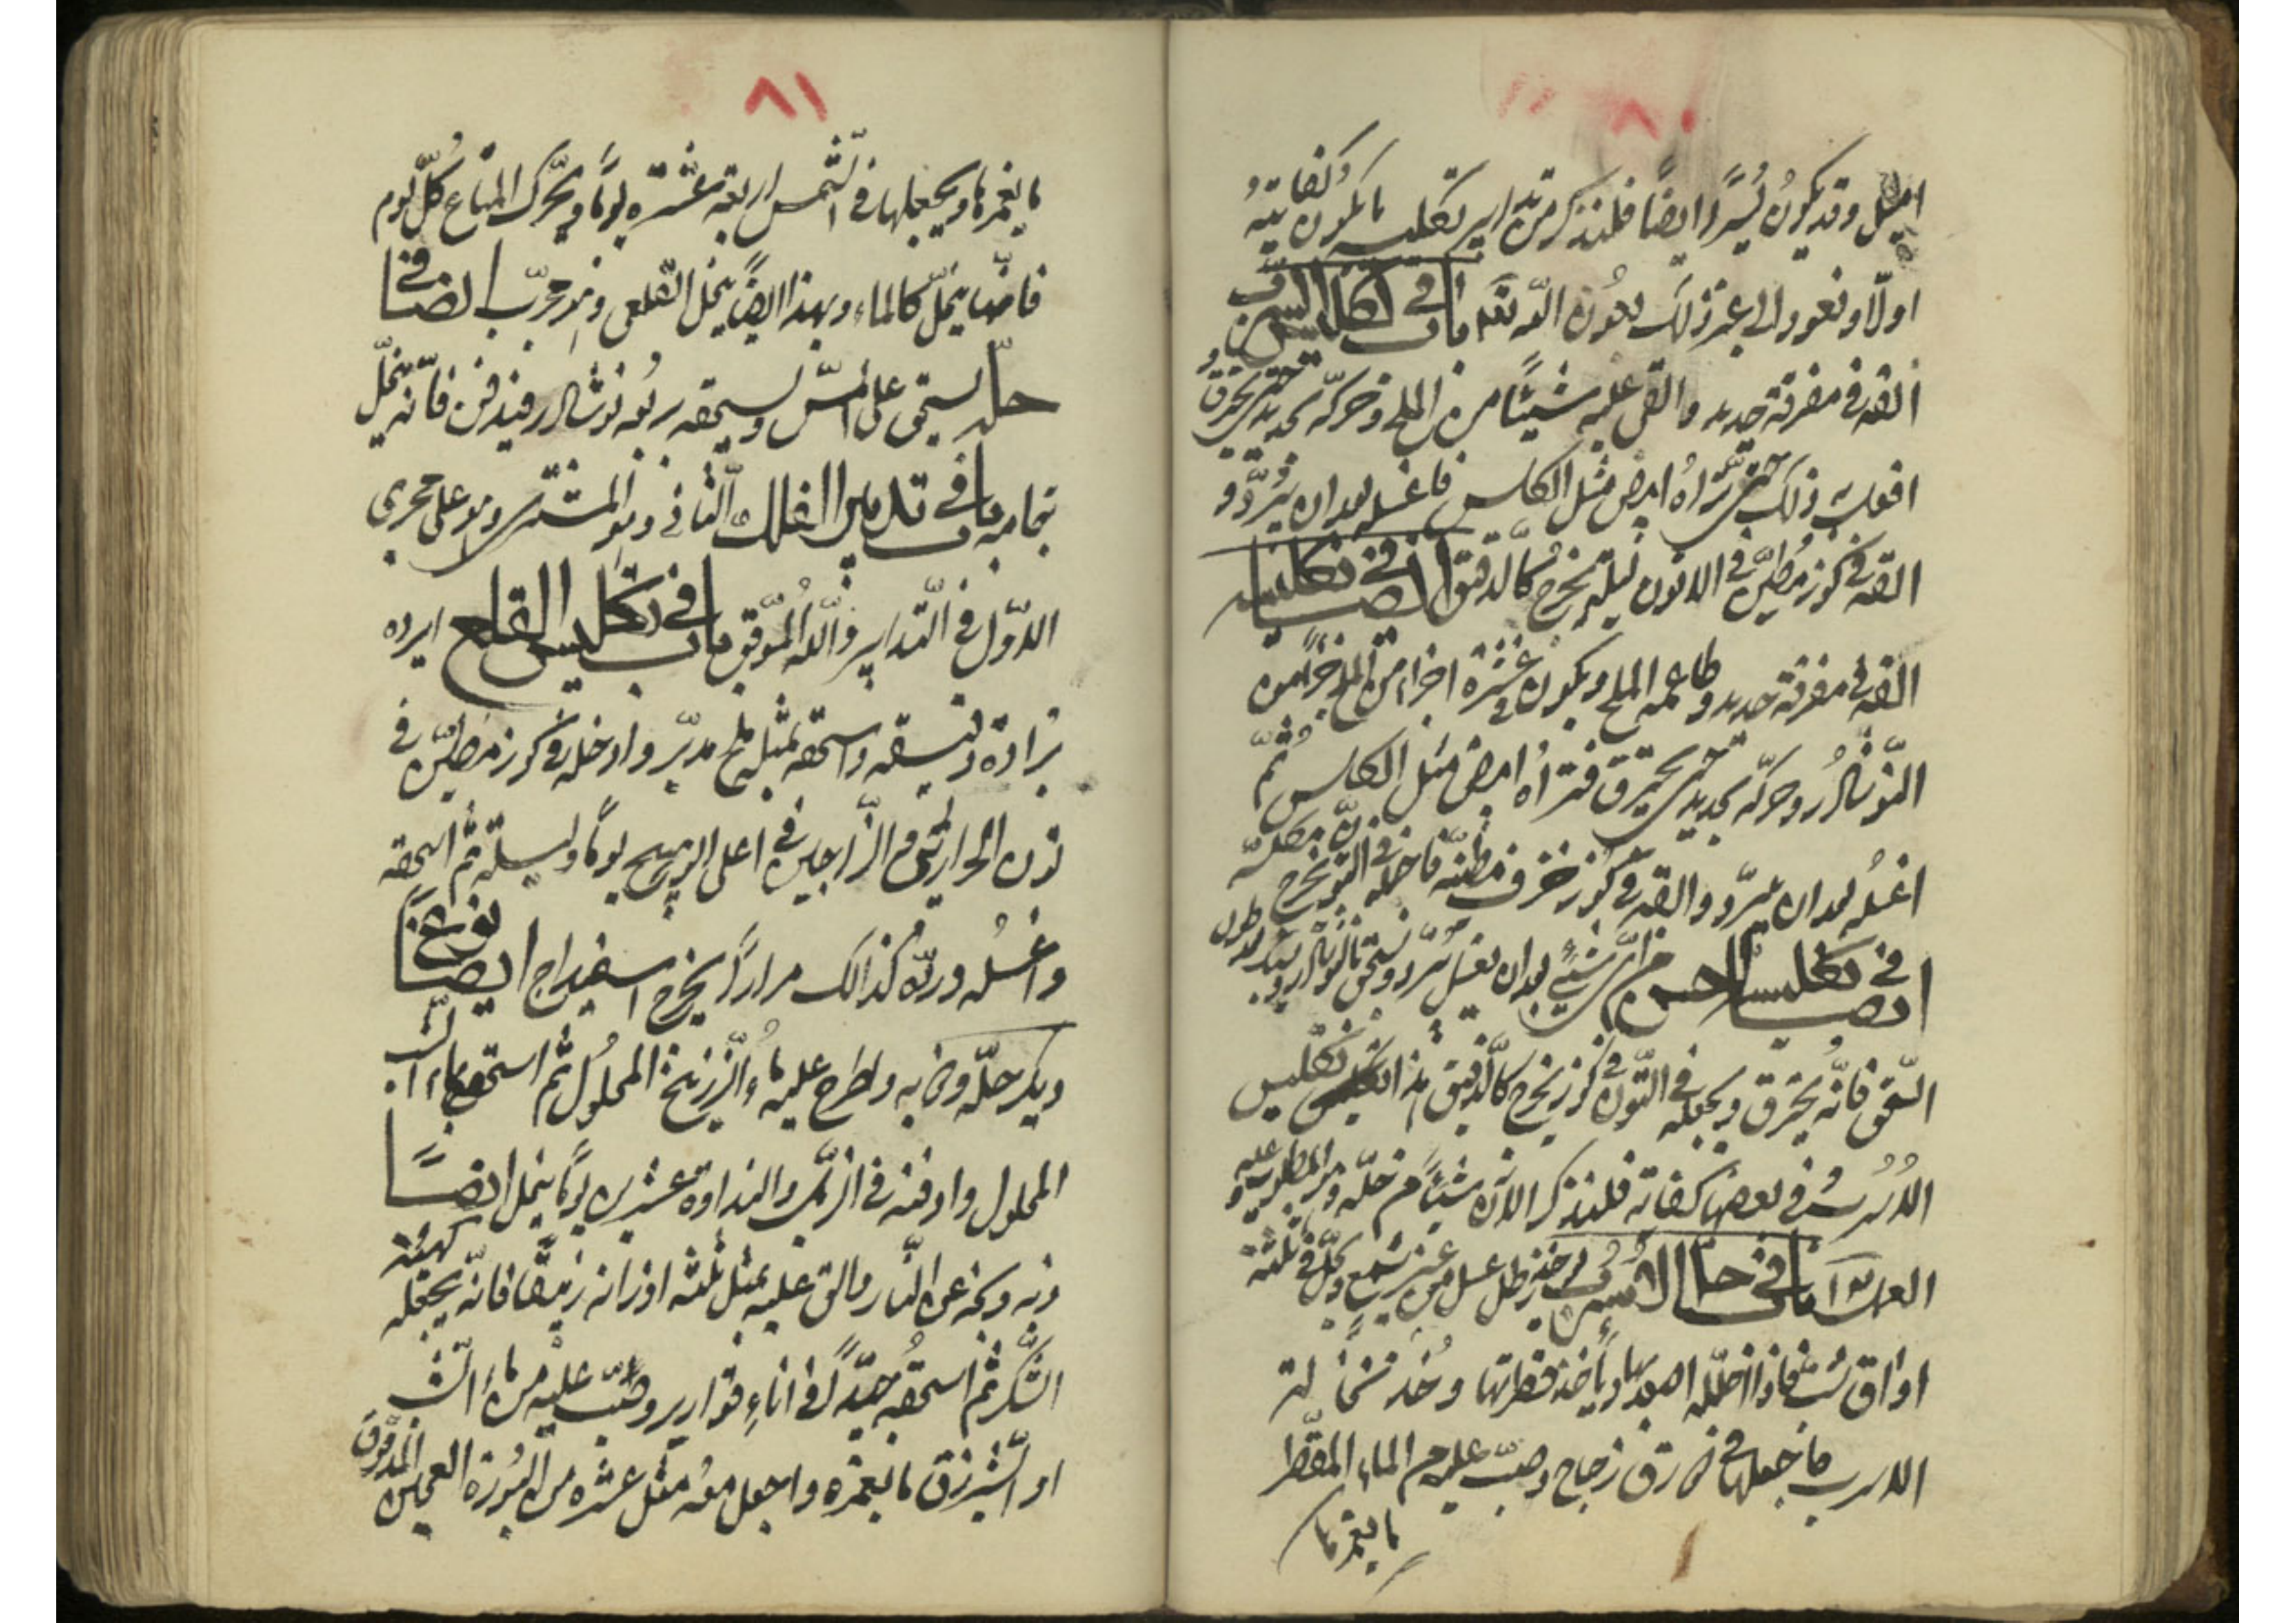 ٨٠
اميل وقد يكون يسيرًا ايضًا فلنذكر من تدابير تكليسه ما يكون كفايته
اولًا ونعود الى غير ذلك بعون الله تعه باب في تكليس الاسرب
القه في مغرفة حديد والق عليه شيئًا من الملح وحركه بحديد حتى يحترق و
افعل به ذلك حتى تراه ابيض مثل الكلس فاغسله بعد ان يبرد و
القه في كوز مطين في الاتون ليلة يخرج كالدقيق ايضا في تكليسه
القه في مغرفة حديد وطاعمه الملح ويكون في عشرة اجزاء من الملح جزء من
النوشادر وحركه بحديد حتى يحترق فتراه ابيض مثل الكلس ثم
اغسله بعد ان يبرد والقه في كوز خزف مطينة فاجعله في التنور يخرج مكلسه
ايضا في تكليس احسن من اي شيئ بعد ان يغسل يبرد ويسحق بالنوشادر
السحق فانه يحترق ويجعله في التون في كوز يخرج كالدقيق هذا تكليس
الاسرب وفي بعضها كفاية فلنذكر الان شيئًا من حله وهو المطلوب عليه و
باب في حل الاسرب خذ رطل عسل من غير شمع وحل في ثلثة
اواق شب فاذا انحل اصعدها وياخذ قطراتها وخذ سخالة
الاسرب فاجعلها في زق زجاج وصب عليهم الماء المقطر
ما يغمرها
٨١
ما يغمرها ويجعلها في الشمس اربعة عشرة يومًا ويحرك المتاع كل يوم
فانها ينحل كالماء وبهذا ايضًا ينحل القلعي وهو مجرب ايضا في
حله يستحق على المس ويسحقه ربعه نوشادر فيدفن فانه ينحل
باب في تدبير الفلك الثاني وهو المشتري وهو على مجرى
الاول في التدابير والله الموفق باب في تكليس القلع ابرده
برادة دقيقه واسحقه بمثله ملح مدبر وادخله في كوز مطين في
اتون الزجاجين في اعلى الزجج يومًا وليلة ثم اسحقه
واغسله ورده كذالك مرارًا يخرج اسفيداج ايضا نوع
حله واطرح عليه ماء الزرنيخ المحلول ثم اسحقه بماء الشب
المحلول وادفنه في الزبل والنداوة عشرين يومًا ينحل ايضًا
ذبه ونحه عن النار والق عليه بمثل ثلثة اوزانه زيبقا فانه يجعله كهيئة
السكر ثم اسحقه جيدًا في اناء قوارير وصب عليه من ماء الشب
او الشيرزق ما يغمره واجعل معه مثل عشره من البورة العجين المدقوق